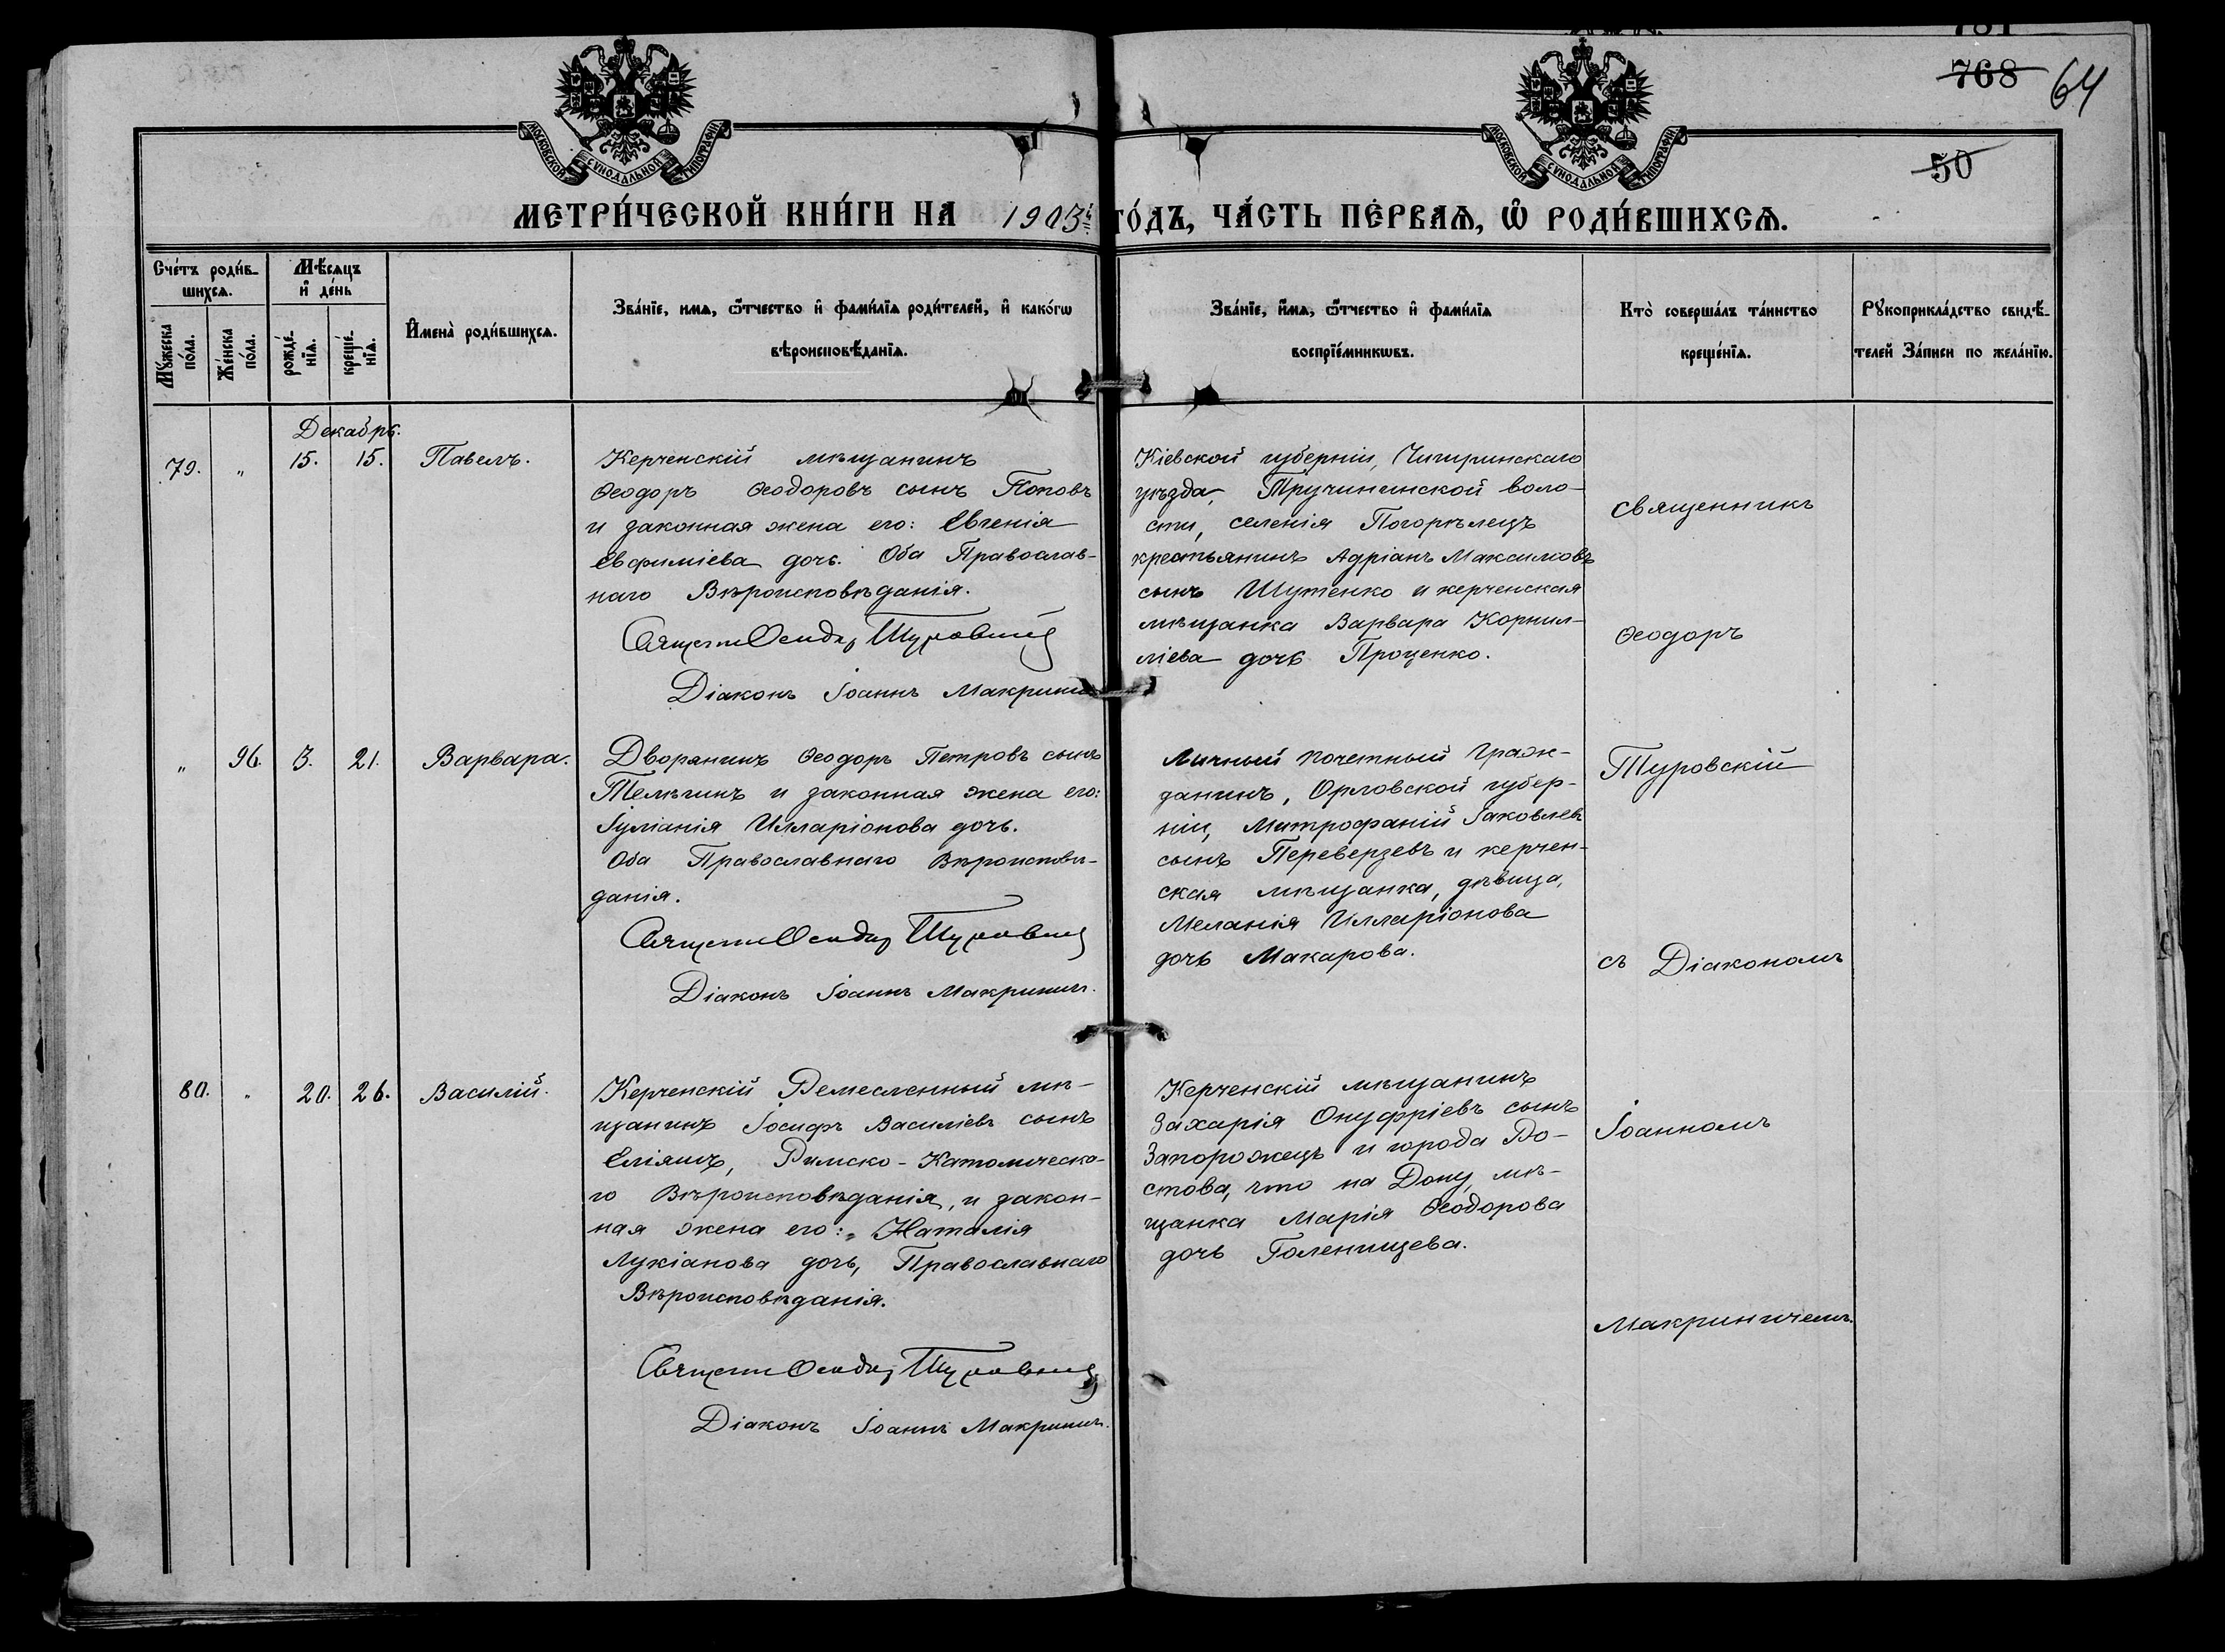 768 64
50
МОСКОВСКОЙ СѴНОДАЛЬНОЙ ТИПОГРАФІИ
МОСКОВСКОЙ СѴНОДАЛЬНОЙ ТИПОГРАФІИ
МЕТРИ́ЧЕСКОЙ КНИ́ГИ НА 1903й ГО́ДЪ, ЧА́СТЬ ПЕ́РВАѦ, Ѡ҆ РОДИ́ВШИХСѦ.
Сче́тъ роди́в-
шихсѧ.
Мꙋжеска по́ла.
Же́нска по́ла.
Мѣ́сѧцъ и҆ де́нь
рожде́-нїѧ.
креще́-нїѧ.
И҆мена̀ роди́вшихсѧ.
Зва́нїе, имѧ, ѻ҆́тчество и҆ фами́лїѧ роди́телей, и҆ како́гѡ
вѣроисповѣ́данїѧ.
Зва́нїе, и҆́мѧ, ѻ҆́тчество и҆ фами́лїѧ
воспрїе́мникѡвъ.
Кто̀ соверша́лъ та́инство
креще́нїѧ.
Рꙋкоприкла́дство свидѣ́-
телей За́писи по жела́нїю.
Декабрь.
79. „ 15. 15. Павелъ.
Керченскій мѣщанинъ
Ѳеодоръ Ѳеодоровъ сынъ Поповъ
и законная жена его: Евгенія
Евфиміева дочь. Оба Православ-
наго Вѣроисповѣданія.
Священ Ѳеодор Туровскій
Діаконъ Іоаннъ Макринич
Кіевской губерніи, Чигиринскаго
уѣзда, воло-
сти, селенія Погорѣлецъ
крестьянинъ Адріанъ Максимовъ
сынъ Шутенко и керченская
мѣщанка Варвара Корнил-
ліева дочь Проценко.
„ 96. 3. 21. Варвара.
Дворянинъ Ѳеодоръ Петровъ сынъ
Телѣгинъ и законная жена его:
Іуліанія Илларіонова дочь.
Оба Православнаго Вѣроисповѣ-
данія.
Священ Ѳеодор Туровскій
Діаконъ Іоаннъ Макринич.
Личный почетный граж-
данинъ, Орловской губер-
ніи, Митрофаній Іаковлевъ
сынъ Переверзевъ и керчен-
ская мѣщанка, дѣвица,
Меланія Илларіонова
дочь Макарова.
80. „ 20. 26. Василій.
Керченскій Ремесленный мѣ-
щанинъ Іосифъ Василіевъ сынъ
Еліяшъ, Римско-Католическа-
го Вѣроисповѣданія, и закон-
ная жена его: Наталія
Лукіанова дочь, Православнаго
Вѣроисповѣданія.
Священ Ѳеодор Туровскій
Діаконъ Іоаннъ Макринич.
Керченскій мѣщанинъ
Захарія Онуфріевъ сынъ
Запорожецъ и города Ро-
стова, что на Дону, мѣ-
щанка Марія Ѳеодорова
дочь Голенищева.
священникъ
Ѳеодоръ
Туровскій
съ Діакономъ
Іоанномъ
Макриничемъ.